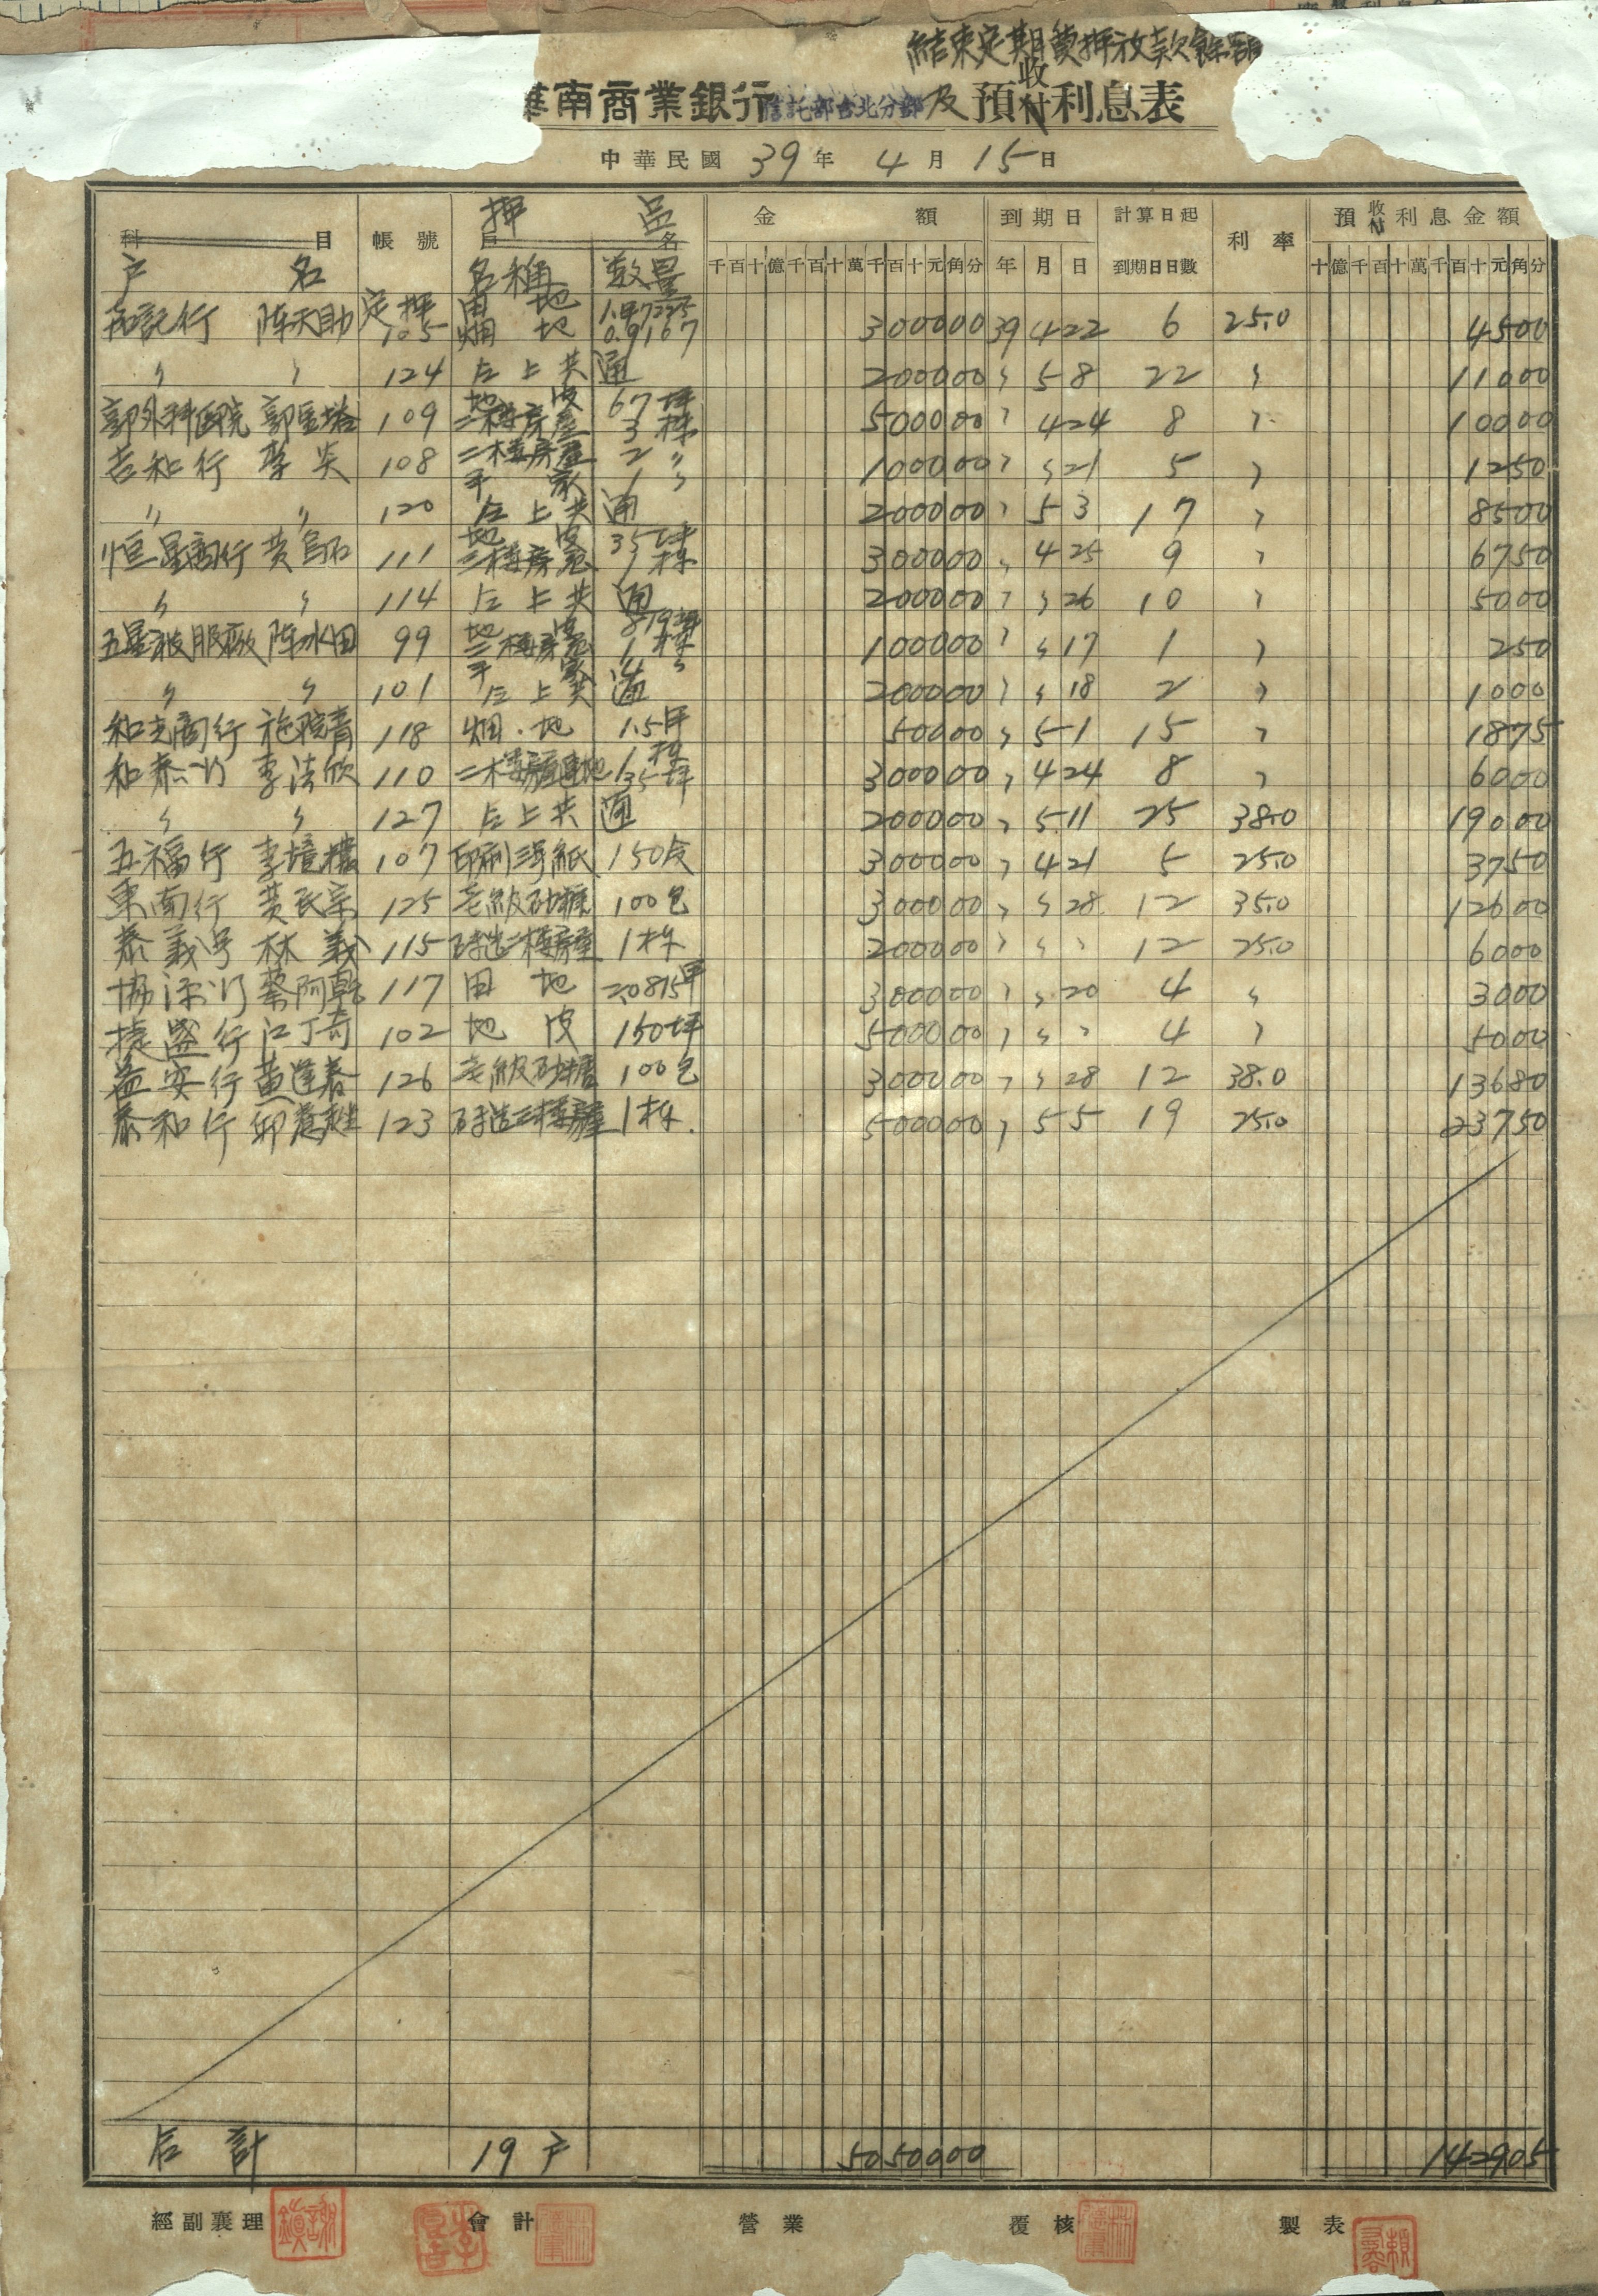 結束定期質押放款餘額
華南商業銀行信託部台北分部及預收付利息表
中華民國39年4月15日
科目 帳號 押品 金額 到期日 計算日起 利率 預收付利息金額
戶名 名稱 數量 千百十億千百十萬千百十元角分 年 月 日 到期日日數 十億千百十萬千百十元角分
陈天助 定押105 田地 畑地 0.9167 300000 39 4 22 6 25.0 4500
〃 〃 124 仝上共通 200000 〃 5 8 22 〃 11000
郭外科医院 郭 109 地皮 二楼房屋 67坪 3栋 500000 〃 4 24 8 〃 10000
吉和行 李炎 108 二楼房屋 平家 2〃 1〃 100000 〃 〃 21 5 〃 1250
〃 〃 120 仝上共通 200000 〃 5 3 17 〃 8500
恒星商行 黄烏石 111 地皮 三楼房屋 35坪 1栋 300000 〃 4 25 9 〃 6750
〃 〃 114 仝上共通 200000 〃 〃 26 10 〃 5000
五星被服廠 陈水田 99 地皮 三楼房屋 平家 1栋 100000 〃 〃 17 1 〃 250
〃 〃 101 仝上共通 200000 〃 〃 18 2 〃 1000
和光商行 施 青 118 畑地 50000 〃 5 1 15 〃 1875
和泰行 李 欣 110 二楼房屋建地 1栋 35坪 300000 〃 4 24 8 〃 6000
〃 〃 127 仝上共通 200000 〃 5 11 25 38.0 19000
五福行 李 107 印刷 紙 150令 300000 〃 4 21 5 25.0 3750
東南行 黄民宗 125 砂糖 100包 300000 〃 〃 28 12 35.0 12600
泰義号 林義 115 磚造二楼房屋 1栋 200000 〃 〃 〃 12 25.0 6000
協源行 蔡阿乾 117 田地 2.0815甲 300000 〃 〃 20 4 〃 3000
捷盛行 江丁奇 102 地皮 150坪 500000 〃 〃 〃 4 〃 5000
益安行 黄逢春 126 砂糖 100包 300000 〃 〃 28 12 38.0 13680
泰和行 123 磚造三楼房屋 1栋. 500000 〃 5 5 19 25.0 23750
合計 19戶 5050000 142905
經副襄理 會計 營業 覆核 製表